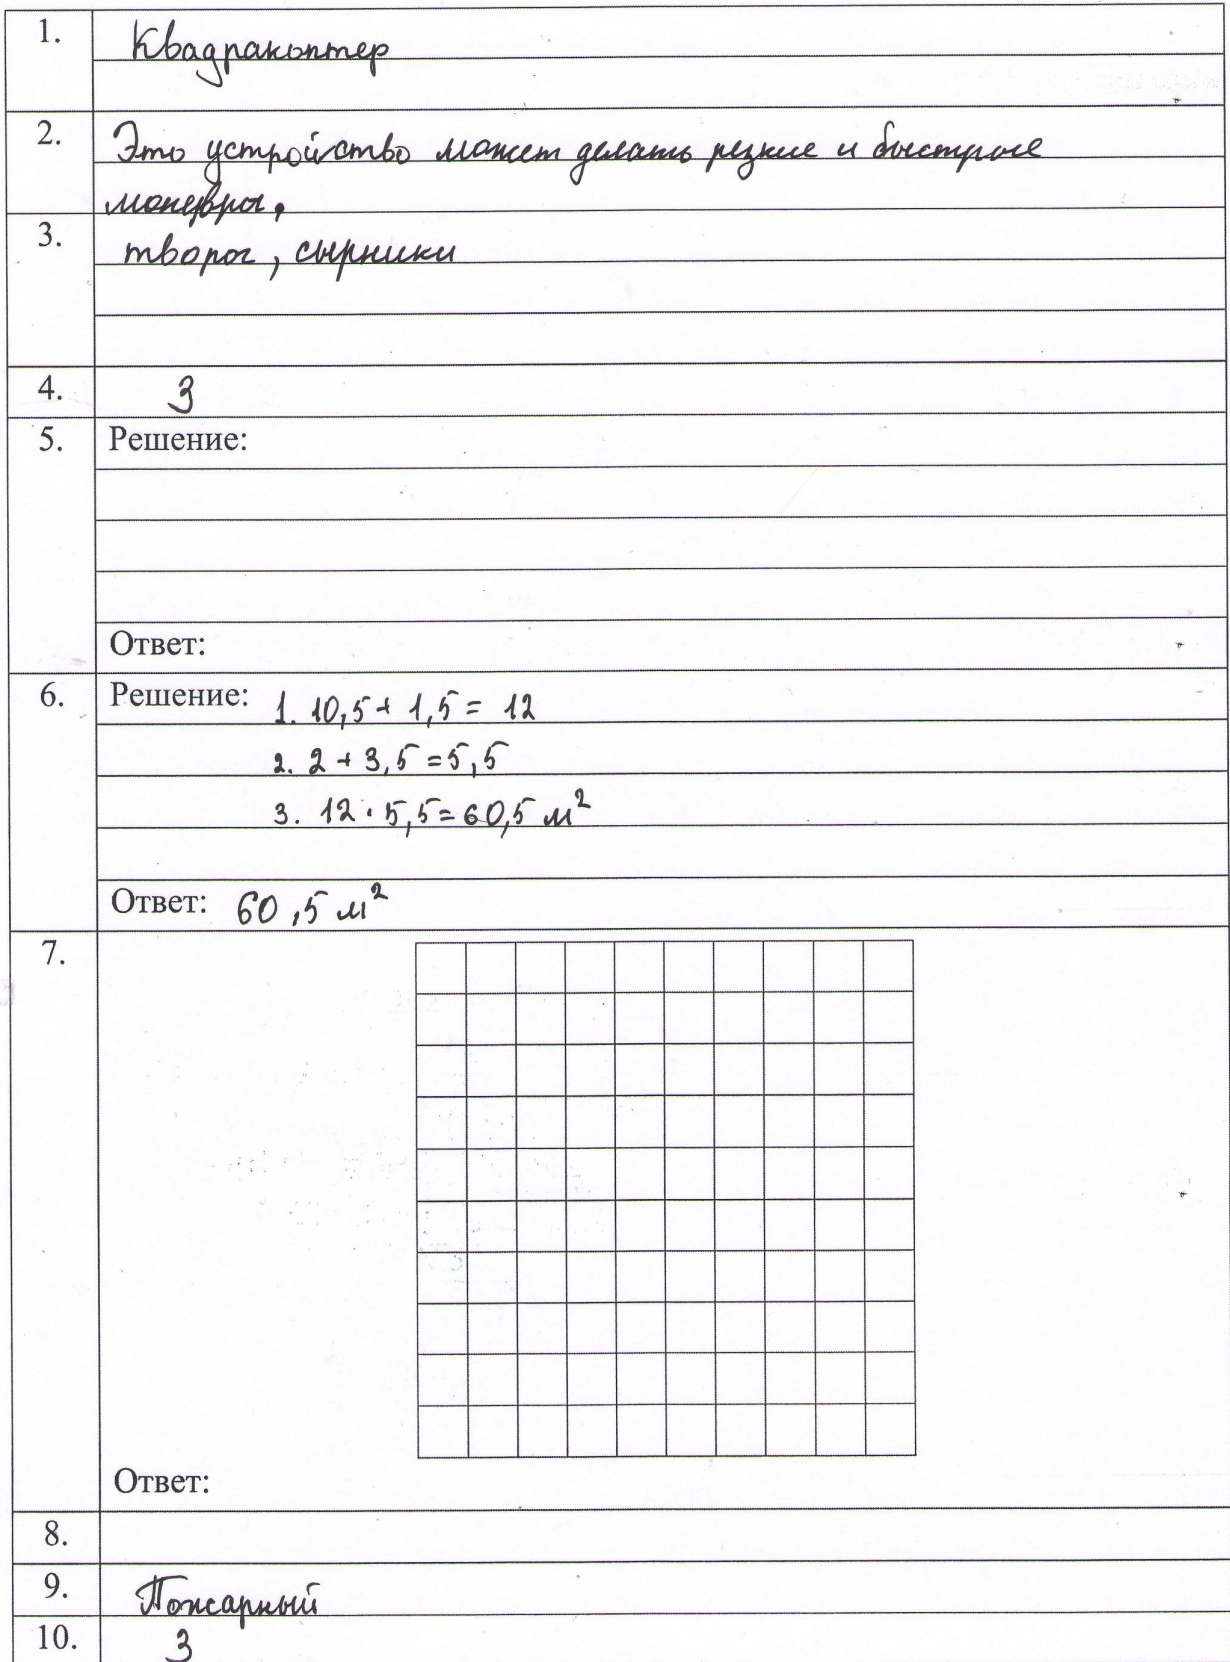 1. Квадракоптер
2. Это устройство может делать резкие и быстрые
маневры.
3. творог, сырники
4. 3
5. Решение:
Ответ:
6. Решение: 1. 10,5 + 1,5 = 12
2. 2 + 3,5 = 5,5
3. 12 · 5,5 = 60,5 м²
Ответ: 60,5 м²
7.
Ответ:
8.
9. Пожарный
10. 3